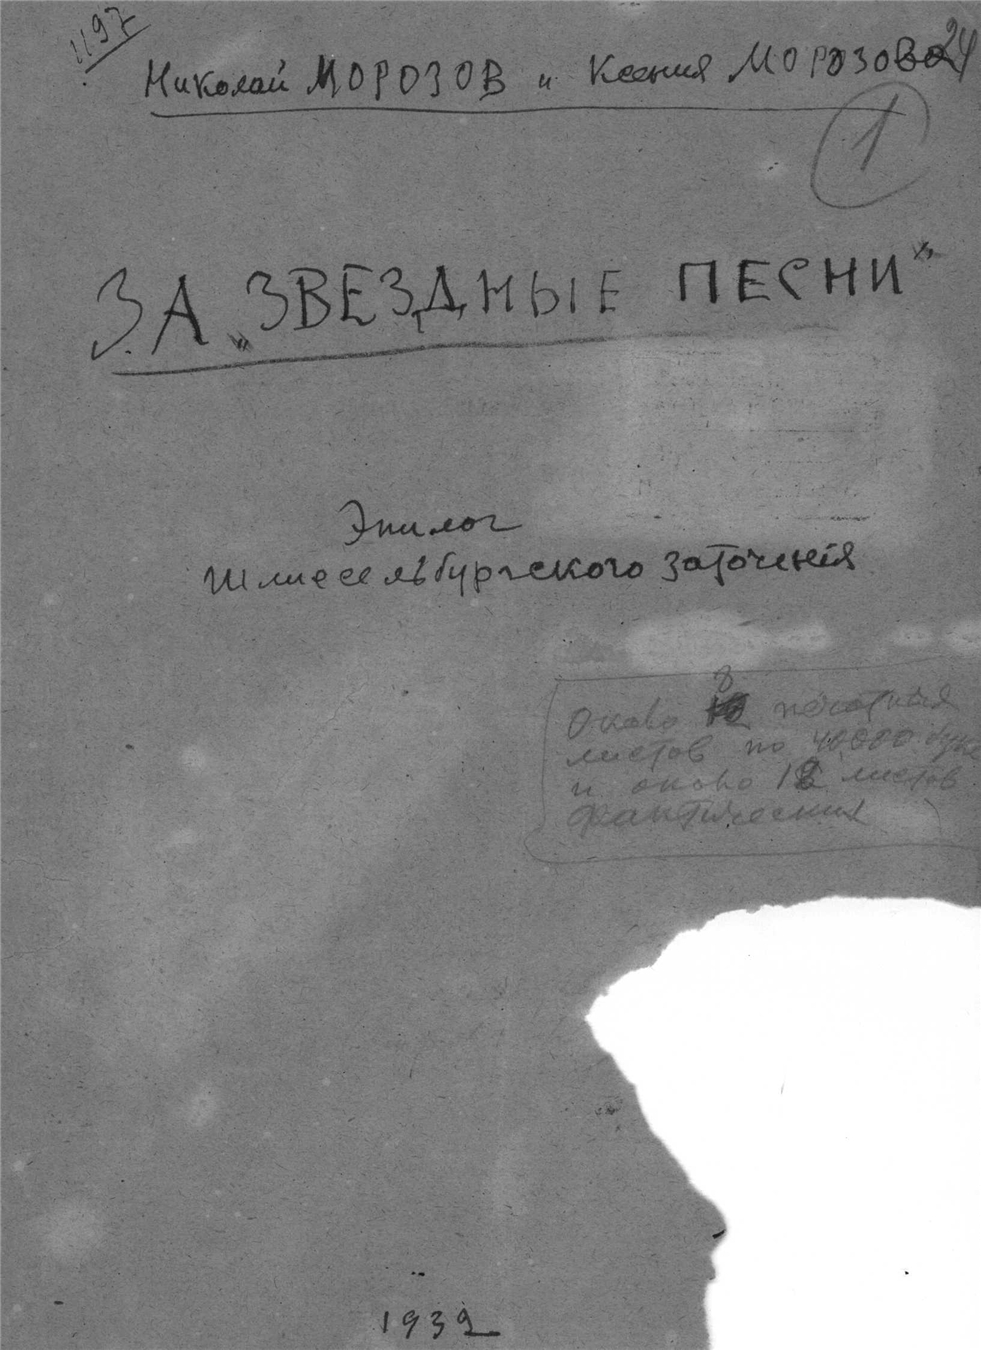 1197
Николай МОРОЗОВ и Ксения МОРОЗОВА
24
1
ЗА „ЗВЕЗДНЫЕ ПЕСНИ"
Эпилог
Шлиссельбургского заточения
8
Около печатных
листов по 40,000 букв
и около 18 листов
фактических
1932